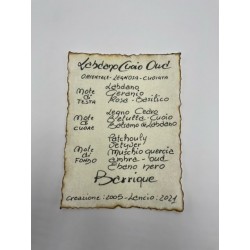 Labdano Cuoio Oud
ORIENTALE - LEGNOSA - CUOIATA
Note di TESTA
Labdano
Geranio
Rosa - Basilico
Note di CUORE
Legno Cedro
Vellutta - Cuoio
Balsamo di Labdano
Note di FONDO
Patchouly
Vetyver
Muschio quercia
ambra - oud
Ebano nero
Barrique
Creazione: 2005 - Lancio: 2021